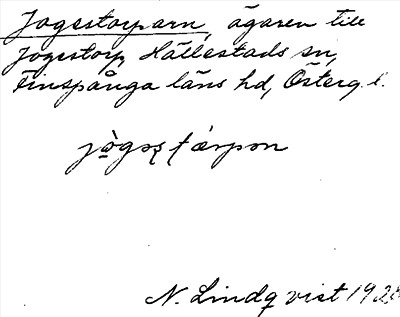 Jogestorparn, ägaren till
Jogestorp, Hällestads sn,
Finspånga läns hd, Österg. l.
N. Lindqvist 192